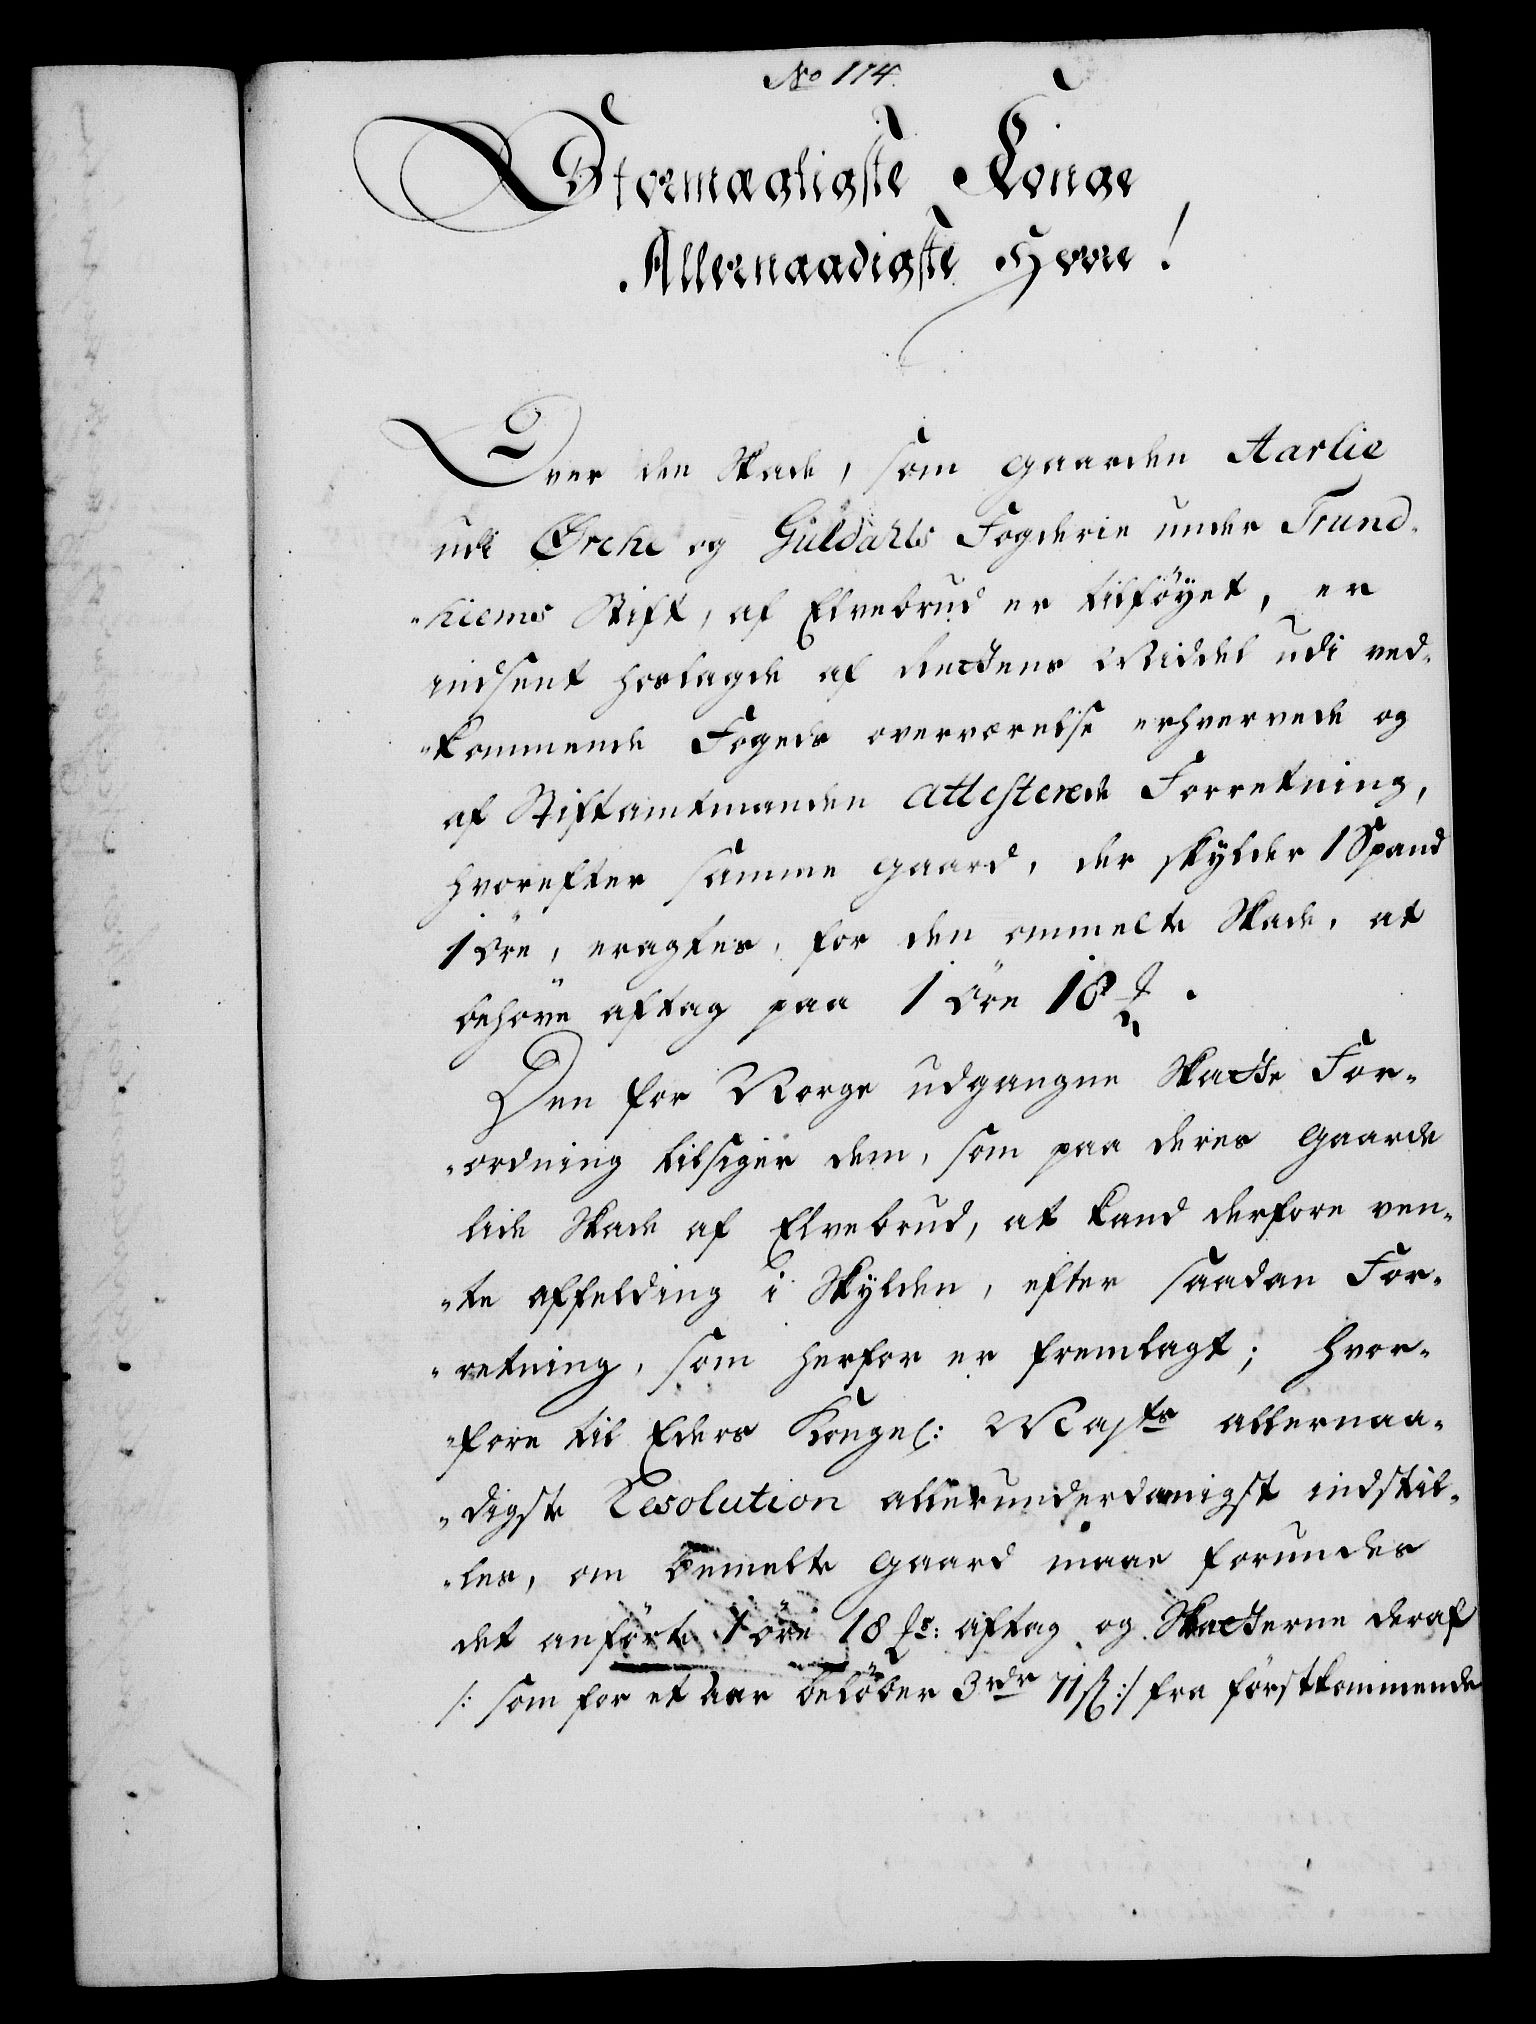 No 114.
Stormægtigste Konge
Allernaadigste Herre!
Over den Skade, som gaarden Aarlie
udi Ørche og Guldahls Fogderie under Trund-
-hiems Stift, af Elvebrud er tilföyet, er
indsent hoslagde af Rettens Middel udi ved-
-kommende Fogeds overværelse erhvervede og
af Stiftamtmanden attesterede Forretning,
hvorefter samme gaard, der skylder 1 Spand
1 öre, eragtes, for den ommelte Skade, at
behöve aftag paa 1 öre 18 .
Den for Norge udgangne Skatte For-
-ordning tilsiger dem, som paa deres gaarde
lide Skade af Elvebrud, at kand derfore ven-
-te affelding i Skylden, efter saadan For-
-retning, som herfor er fremlagt; hvor-
-fore til Eders Kongel: Majts allernaa-
-digste Resolution allerunderdanigst indstil-
-les, om bemelte gaard maae forundes
det anförte 1 öre 18 aftag og Skatterne deraf
/: som for et aar belöber 3 rdr 71 ß :/ fra förstkommende